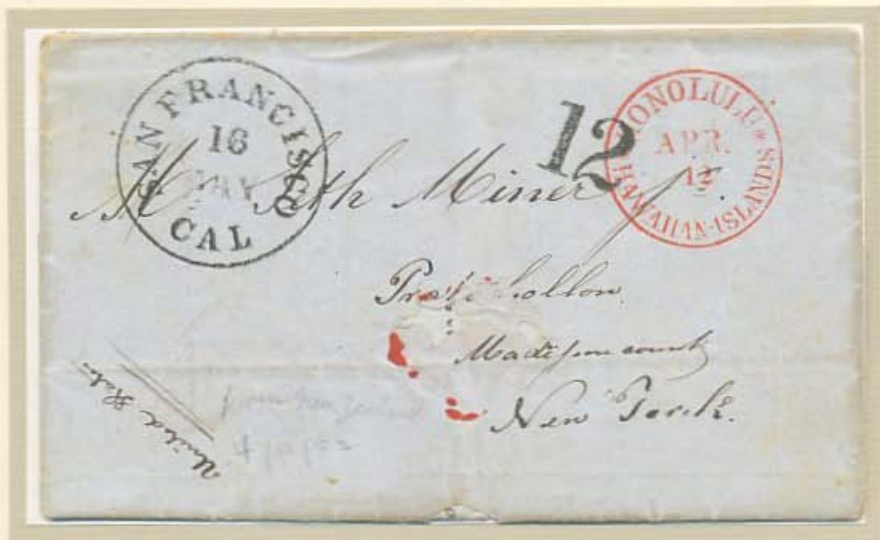 SAN FRANCISCO
16
MAY
CAL
12
HONOLULU *
APR.
12
HAWAIIAN-ISLANDS
Mr Seth Miner jr.
Pratts hollow.
Madison county
New York.
United States
from New Zealand
4 pages